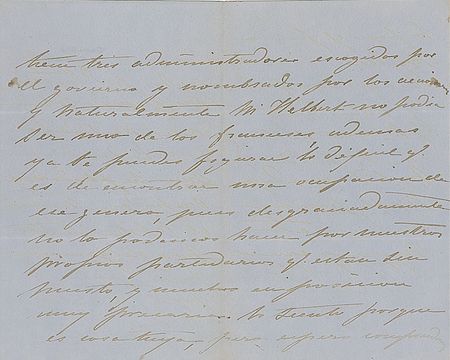 tiene tres administradores escogidos por
el govierno y nombrados por los
y naturalmente Mr Helbert no podia
ser uno de los franceses ademas
ya te puedes figurar lo dificil q.
es de encontrar una ocupacion de
ese genero, pues desgraciadamente
no lo podemos hacer por nuestros
propios partidarios q. estan sin
puesto, y muchos en posicion
muy precaria. Lo siento porque
es cosa tuya, pero espero